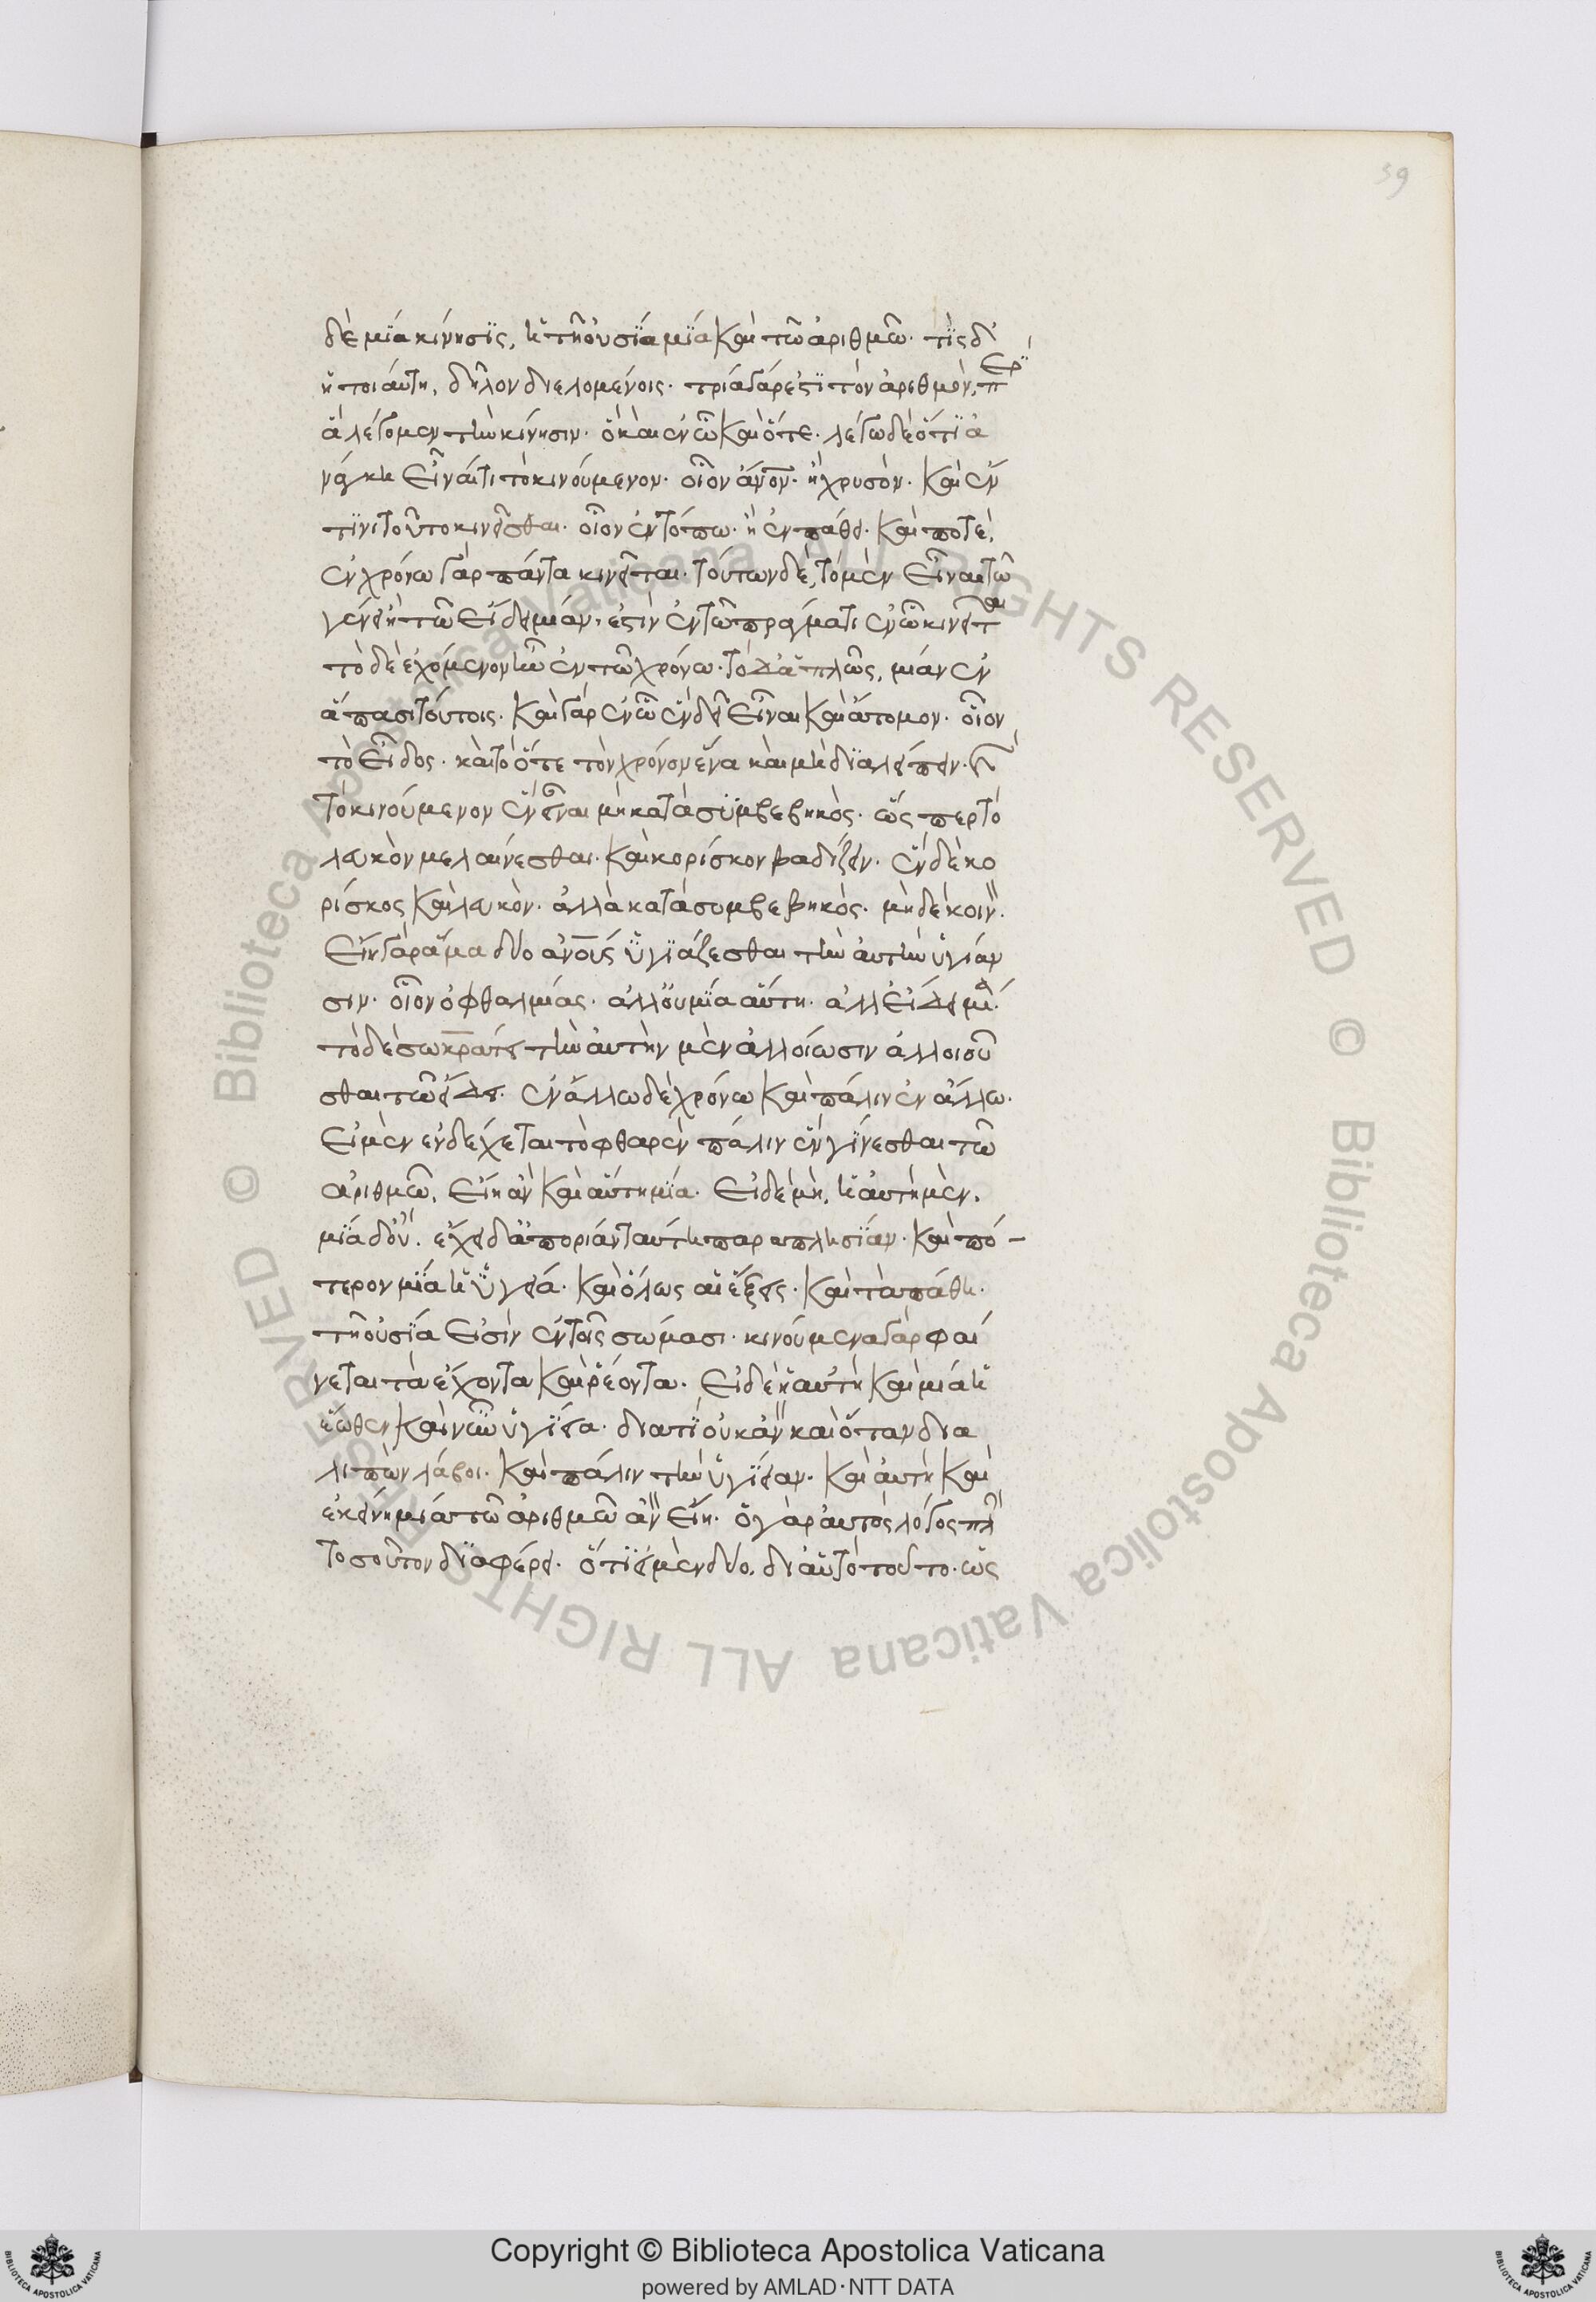 39
δὲ μία κίνησις, ἡ τῆ οὐσία μία καὶ τῶ ἀριθμῶ· τίς δ'
ἡ τοιαύτη, δῆλον διελομένοις· τρία γάρ ἐστι τὸν ἀριθμὸν, περὶ
ἃ λέγομεν τὴν κίνησιν· ὃ καὶ ἐν ῶ καὶ ὅτε· λέγω δὲ ὅτι ἀ
νάγκη εἶναί τι τὸ κινούμενον· οἷον ἄνον· ἢ χρυσὸν· καὶ ἔν
τινι τοῦτο κινεῖσθαι· οἷον ἐν τόπω· ἢ ἐν πάθει· καὶ ποτὲ,
ἐν χρόνω γὰρ πάντα κινεῖται· τούτων δὲ, τὸ μὲν εἶναι τῶ
γένει ἢ τῶ εἴδει μίαν, ἐστὶν ἐν τῶ πράγματι ἐν ῶ κινεῖται
τὸ δὲ ἐχόμενον ἦν ἐν τῶ χρόνω· τὸ δ' ἁπλῶς, μίαν ἐν
ἅπασι τούτοις· καὶ γὰρ ἐν ῶ ἓν δεῖ εἶναι καὶ ἄτομον· οἷον
τὸ εἶδος· καὶ τὸ ὅτε τὸν χρόνον ἕνα καὶ μὴ διαλείπειν· καὶ
τὸ κινούμενον ἓν εἶναι μὴ κατὰ συμβεβηκὸς· ὥσπερ τὸ
λευκὸν μελαίνεσθαι· καὶ κορίσκον βαδίζειν· ἓν δὲ κο
ρίσκος καὶ λευκὸν· ἀλλὰ κατὰ συμβεβηκὸς· μηδὲ κοιν·
εἴη γὰρ ἅμα δύο ἀνους ὑγιάζεσθαι τὴν αὐτὴν ὑγίαν
σιν· οἷον ὀφθαλμίας· ἀλλ' οὐ μία αὕτη· ἀλλ' εἴδει μία·
τὸ δὲ σωκράτη τὴν αὐτὴν μὲν ἀλλοίωσιν ἀλλοιοῦ
σθαι τῶ εἴδει· ἐν ἄλλω δὲ χρόνω καὶ πάλιν ἐν ἄλλω·
εἰ μὲν ἐνδέχεται τὸ φθαρὲν πάλιν ἓν γίνεσθαι τῶ
ἀριθμῶ, εἴη ἂν καὶ αὕτη μία· εἰ δὲ μὴ, ἡ αὐτὴ μὲν,
μία δ' οὔ· ἔχει δ' ἀπορίαν ταύτη παραπλησίαν· καὶ πό-
τερον μία ἡ ὑγιεία· καὶ ὅλως αἱ ἕξεις· καὶ τὰ πάθη·
τῆ οὐσία εἰσὶν ἐν τοῖς σώμασι· κινούμενα γὰρ φαί
νεται τὰ ἔχοντα καὶ ῥέοντα· εἰ δὲ ἡ αὐτὴ καὶ μία ἡ
ἕωθεν καὶ νῦν ὑγίεια· διατί οὐκ ἂν καὶ ὅταν δια
λιπὼν λάβοι· καὶ πάλιν τὴν ὑγίειαν· καὶ αὐτὴ καὶ
ἐκείνη μία τῶ ἀριθμῶ ἂν εἴη· ὁ γὰρ αὐτὸς λόγος πλὴν
τοσοῦτον διαφέρει· ὅτι εἰ μὲν δύο, δι' αὐτὸ τοῦτο· ὡς
© Biblioteca Apostolica Vaticana ALL RIGHTS RESERVED
© Biblioteca Apostolica Vaticana ALL RIGHTS RESERVED
Copyright © Biblioteca Apostolica Vaticana
powered by AMLAD·NTT DATA
BIBLIOTECA APOSTOLICA VATICANA
BIBLIOTECA APOSTOLICA VATICANA